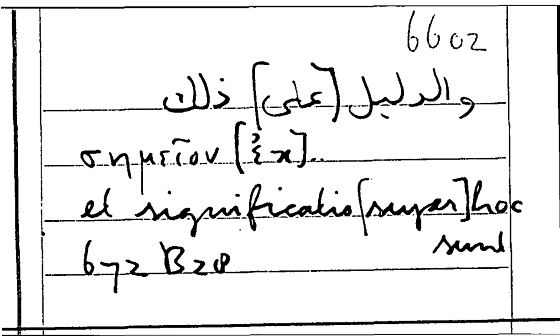 6602
والدليل [على] ذلك
σημεῖον
et significatio [super] hoc
sunt
672 B28